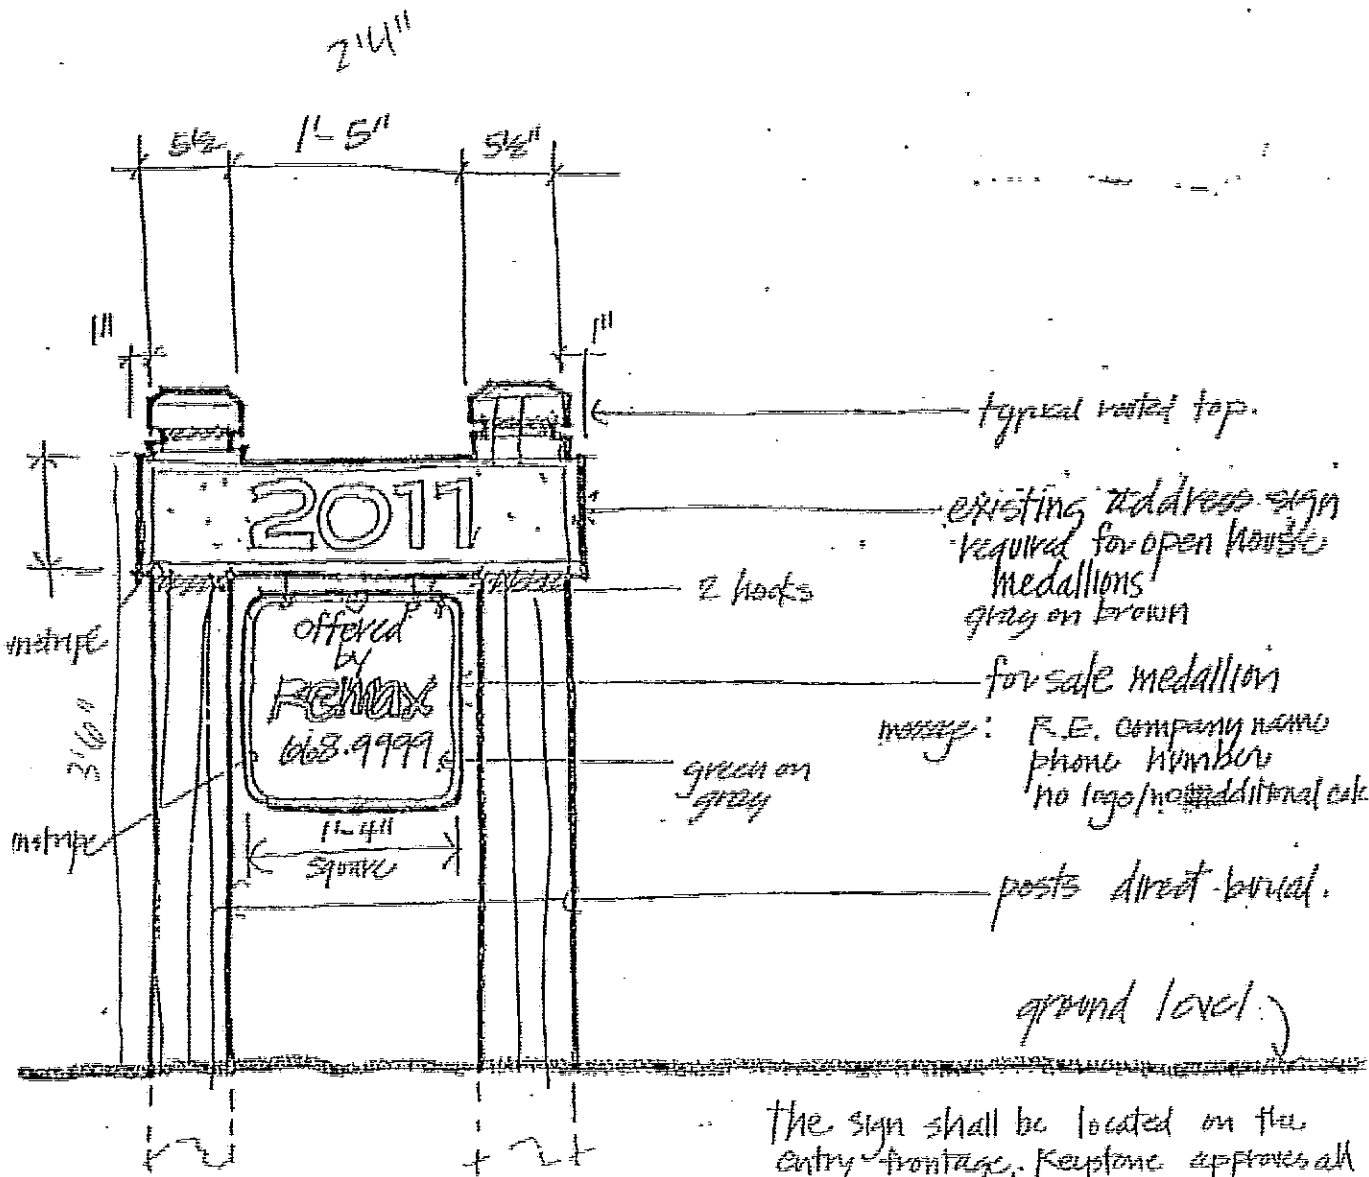 2'4"
5½ 1'-5" 5½"
1" 1"
typical routed top.
2011
existing address sign
required for open house
medallions
gray on brown
2 hooks
offered
by
Remax
668.9999
instripe
3'6"
for sale medallion
message: R.E. company name
phone number
no logo/no additional
green on
gray
instripe
1'-4"
square
posts direct burial.
ground level
the sign shall be located on the
entry frontage. Keystone approves all